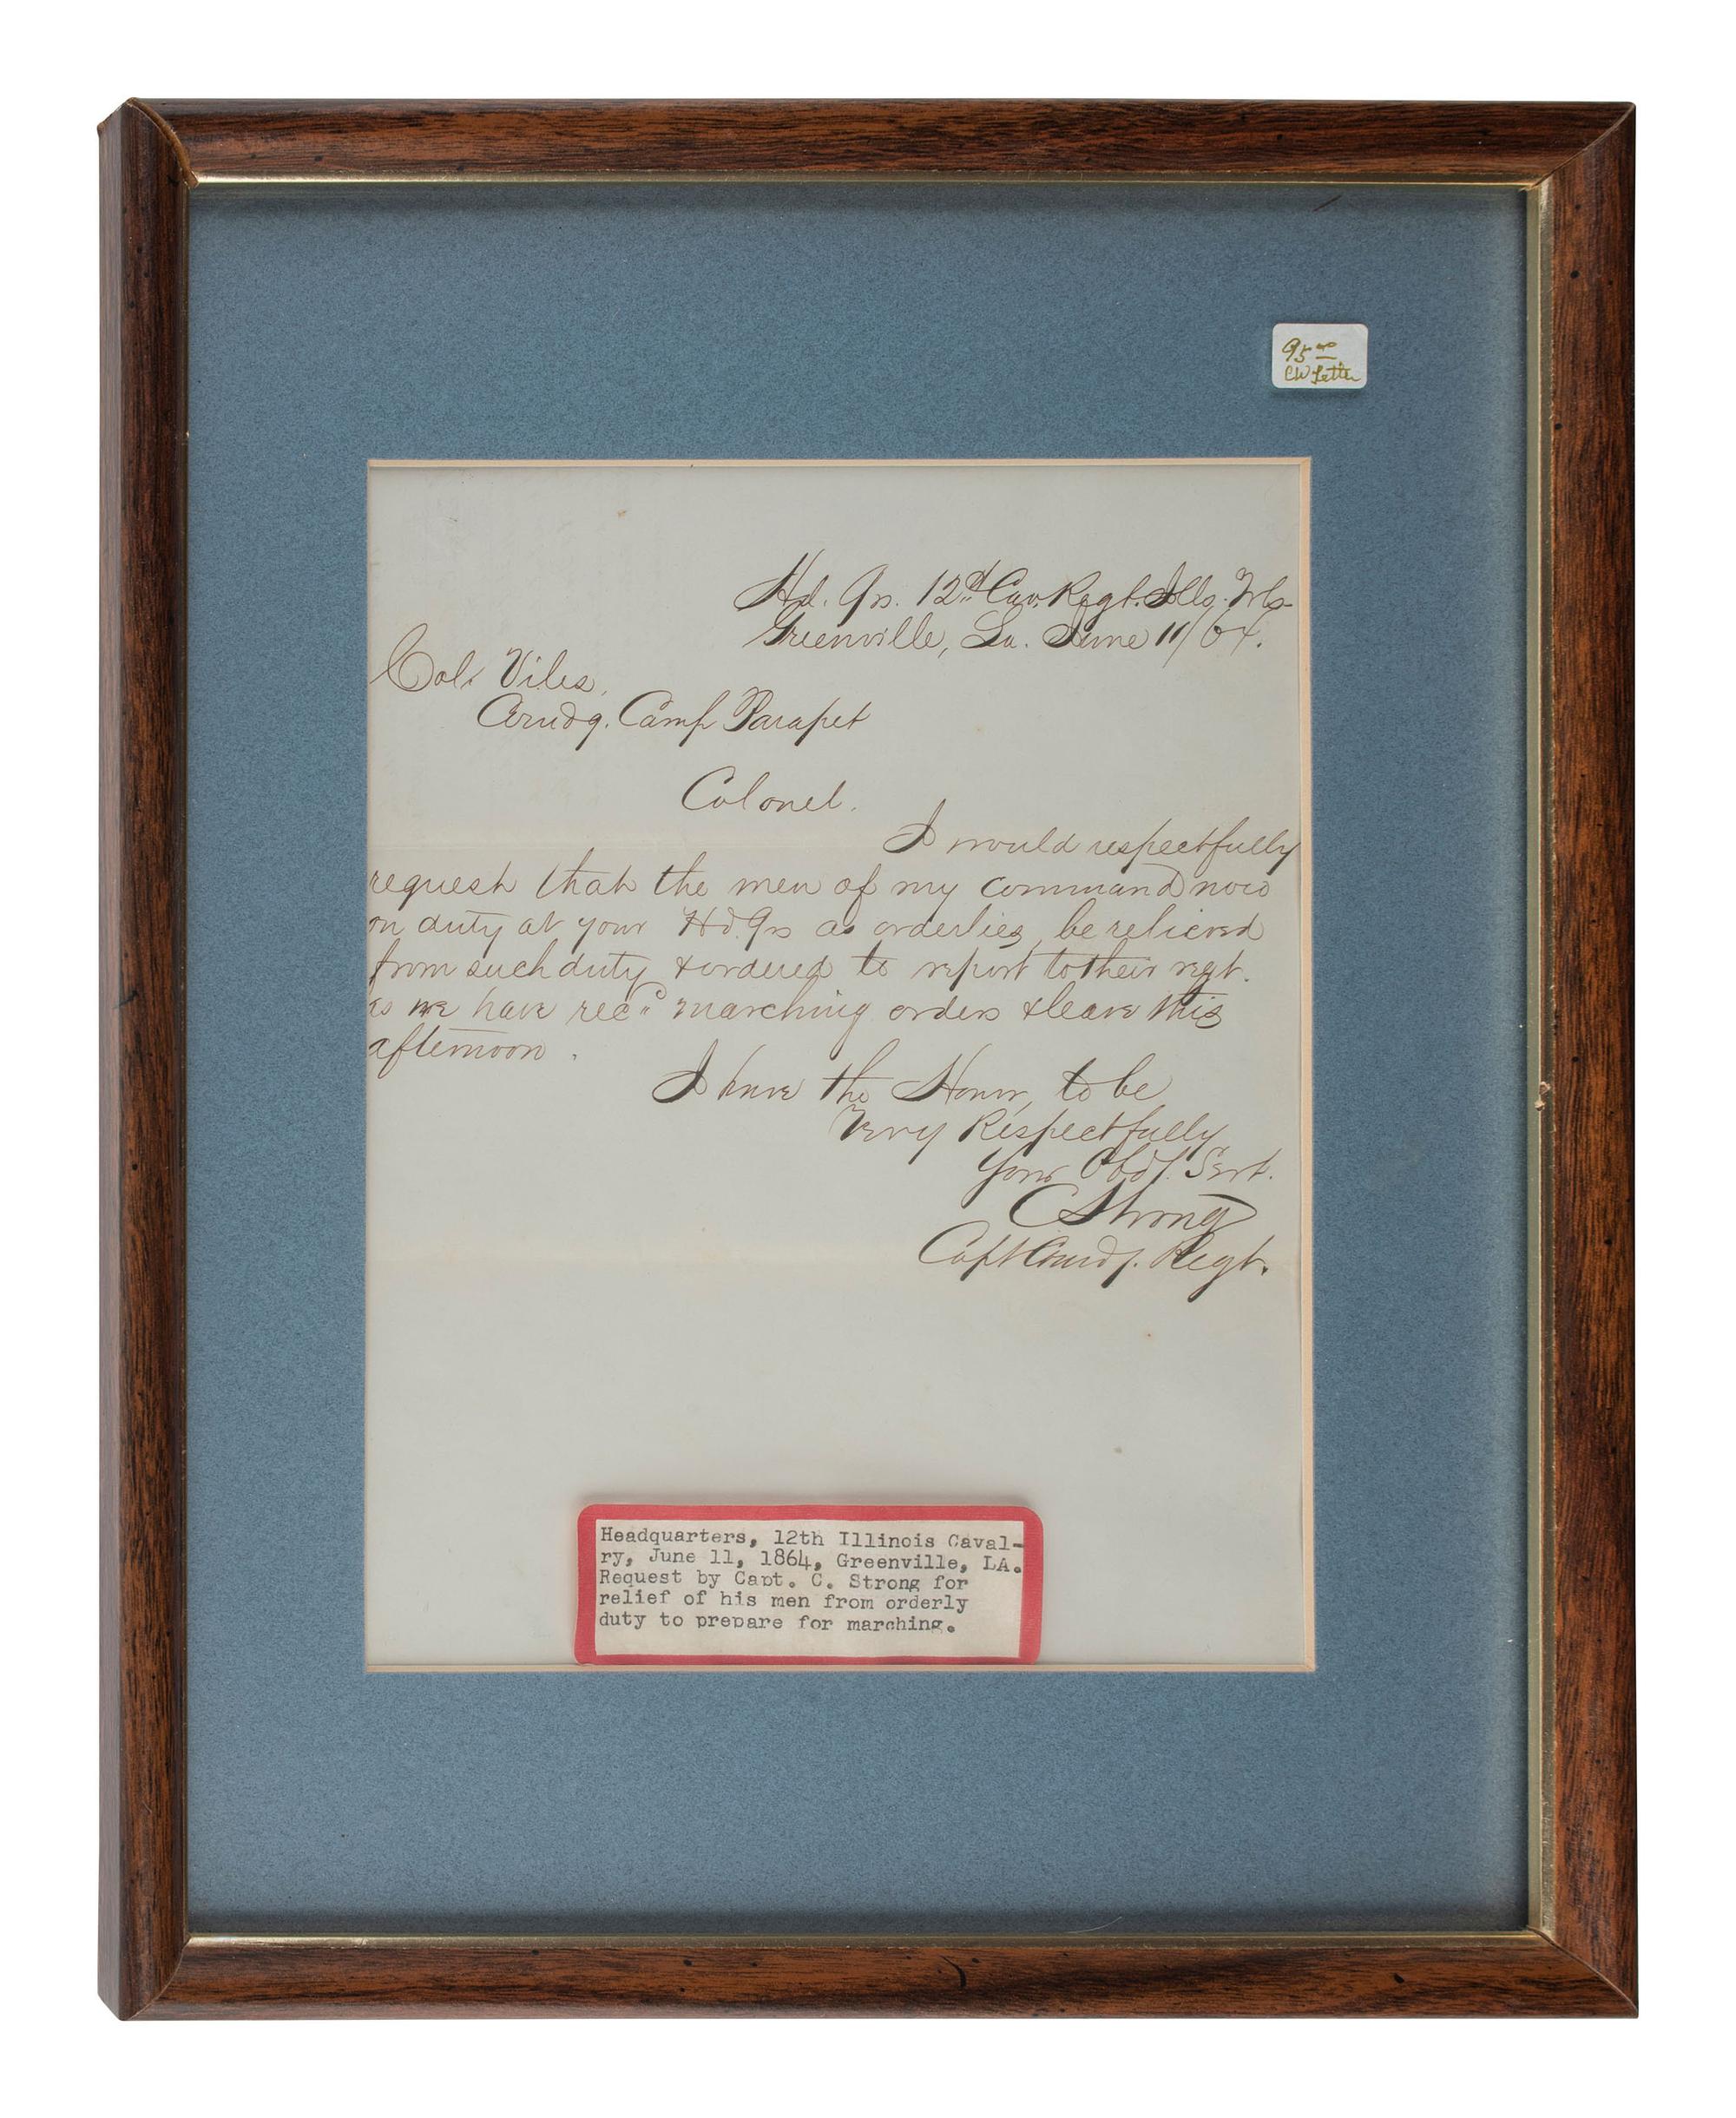 95.00
CW Letter
Hd. Qrs. 12th Cav. Regt. Ills. Vols
Greenville, La. June 11/64.
Col. Viles,
Comdg. Camp Parapet
Colonel.
I would respectfully
request that the men of my command now
on duty at your Hd. Qrs as orderlies, be relieved
from such duty & ordered to report to their regt.
as we have recd marching orders & leave this
afternoon.
I have the Honor, to be
Very Respectfully
Your Obdt. Servt.
C Strong
Capt Comdg. Regt.
Headquarters, 12th Illinois Caval-
ry, June 11, 1864, Greenville, LA.
Request by Capt. C. Strong for
relief of his men from orderly
duty to prepare for marching.